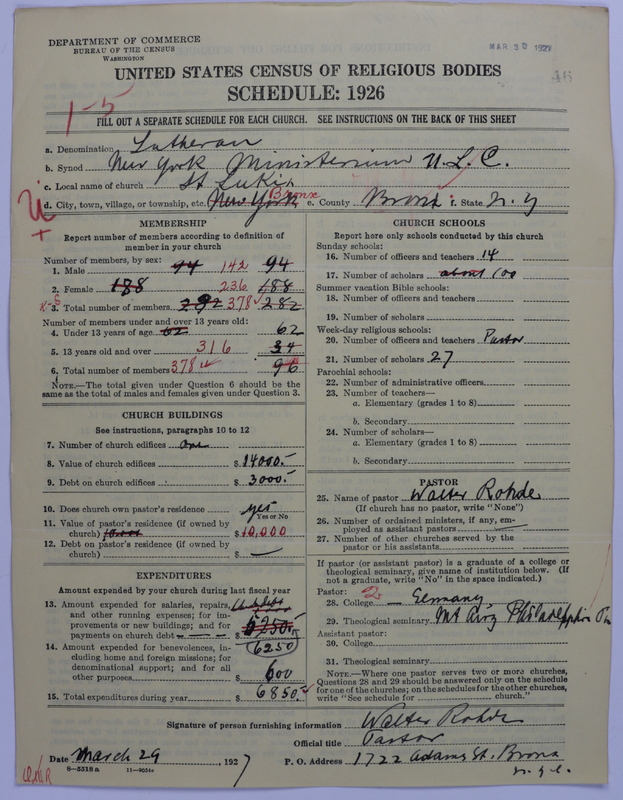 DEPARTMENT OF COMMERCE
BUREAU OF THE CENSUS
WASHINGTON
MAR 30 1927
46
UNITED STATES CENSUS OF RELIGIOUS BODIES
SCHEDULE: 1926
1-5
FILL OUT A SEPARATE SCHEDULE FOR EACH CHURCH. SEE INSTRUCTIONS ON THE BACK OF THIS SHEET
a. Denomination Lutheran
b. Synod New York Ministerium U.L.C.
c. Local name of church St Luke's
d. City, town, village, or township, etc. New York Bronx e. County Bronx f. State N.Y
MEMBERSHIP
Report number of members according to definition of
member in your church
Number of members, by sex:
1. Male 94 142 94
2. Female 188 236 188
3. Total number of members 292 378 282
Number of members under and over 13 years old:
4. Under 13 years of age 62 62
5. 13 years old and over 316 34
6. Total number of members 378 96
NOTE.—The total given under Question 6 should be
same as the total of males and females given under Question 3.
CHURCH BUILDINGS
See instructions, paragraphs 10 to 12
7. Number of church edifices one
8. Value of church edifices $ 14000.-
9. Debt on church edifices $ 3000.-
10. Does church own pastor's residence yes
Yes or No
11. Value of pastor's residence (if owned by
church) $ 10,000
12. Debt on pastor's residence (if owned by
church) $ —
EXPENDITURES
Amount expended by your church during last fiscal year
13. Amount expended for salaries, repairs,
and other running expenses; for im-
provements or new buildings; and for
payments on church debt $ 6250.-
14. Amount expended for benevolences, in-
cluding home and foreign missions; for
denominational support; and for all
other purposes $ 600
6250
15. Total expenditures during year $ 6850.-
CHURCH SCHOOLS
Report here only schools conducted by this church
Sunday schools:
16. Number of officers and teachers 14
17. Number of scholars about 100
Summer vacation Bible schools:
18. Number of officers and teachers
19. Number of scholars
Week-day religious schools:
20. Number of officers and teachers Pastor
21. Number of scholars 27
Parochial schools:
22. Number of administrative officers
23. Number of teachers—
a. Elementary (grades 1 to 8)
b. Secondary
24. Number of scholars—
a. Elementary (grades 1 to 8)
b. Secondary
PASTOR
25. Name of pastor Walter Rohde
(If church has no pastor, write "None")
26. Number of ordained ministers, if any, em-
ployed as assistant pastors —
27. Number of other churches served by the
pastor or his assistants
If pastor (or assistant pastor) is a graduate of a college or
theological seminary, give name of institution below. (If
not a graduate, write "No" in the space indicated.)
Pastor: 2
28. College — Germany
29. Theological seminary Mt Airy Philadelphia Pa
Assistant pastor:
30. College
31. Theological seminary
NOTE.—Where one pastor serves two or more churches,
Questions 28 and 29 should be answered only on the schedule
for one of the churches; on the schedules for the other churches,
write "See schedule for church."
Signature of person furnishing information Walter Rohde
Official title Pastor
Date March 29, 1927 P. O. Address 1722 Adams St. Bronx
N.Y.C.
8—5318a 11—9054